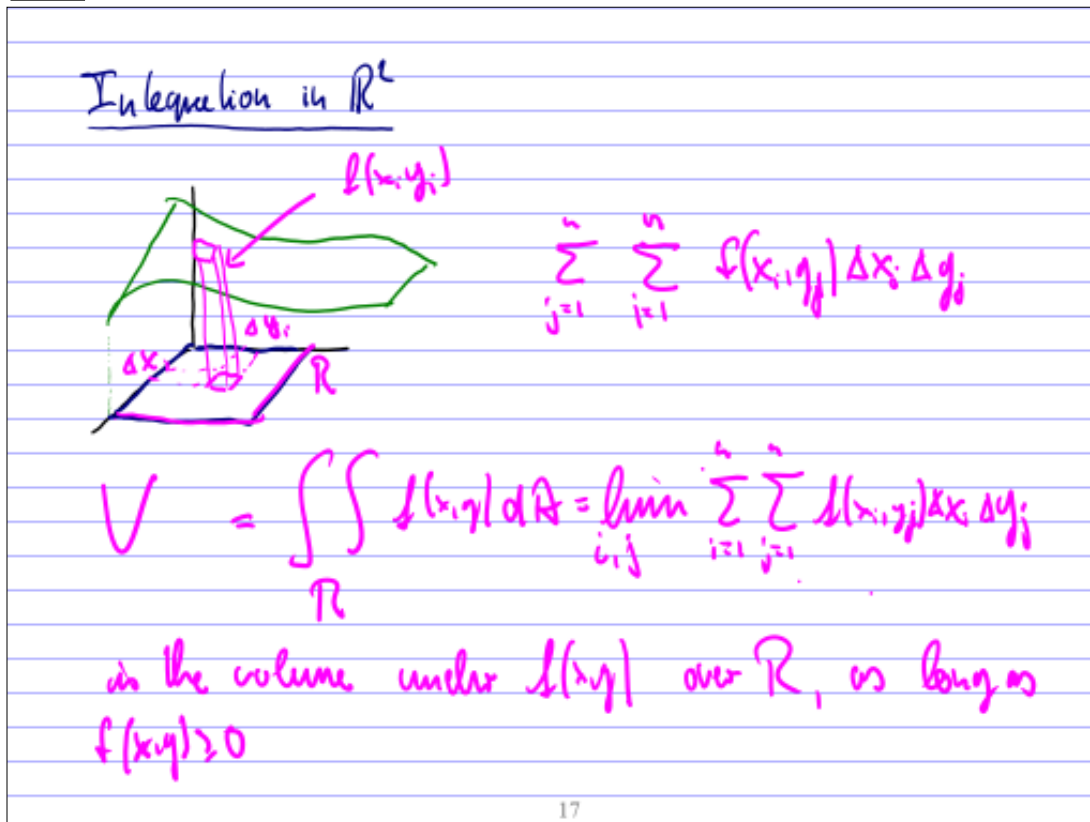 Integration in ℝ²
f(x_i, y_i)
∑_{j=1}^{n} ∑_{j=1}^{n} f(x_i, y_j) Δx_i Δy_j
Δy_i
Δx_i
R
V = ∬_R f(x,y) dA = lim_{i,j} ∑_{i=1}^{n} ∑_{j=1}^{n} f(x_i, y_j) Δx_i Δy_j
is the volume under f(x,y) over R, as long as
f(x,y) ≥ 0
17